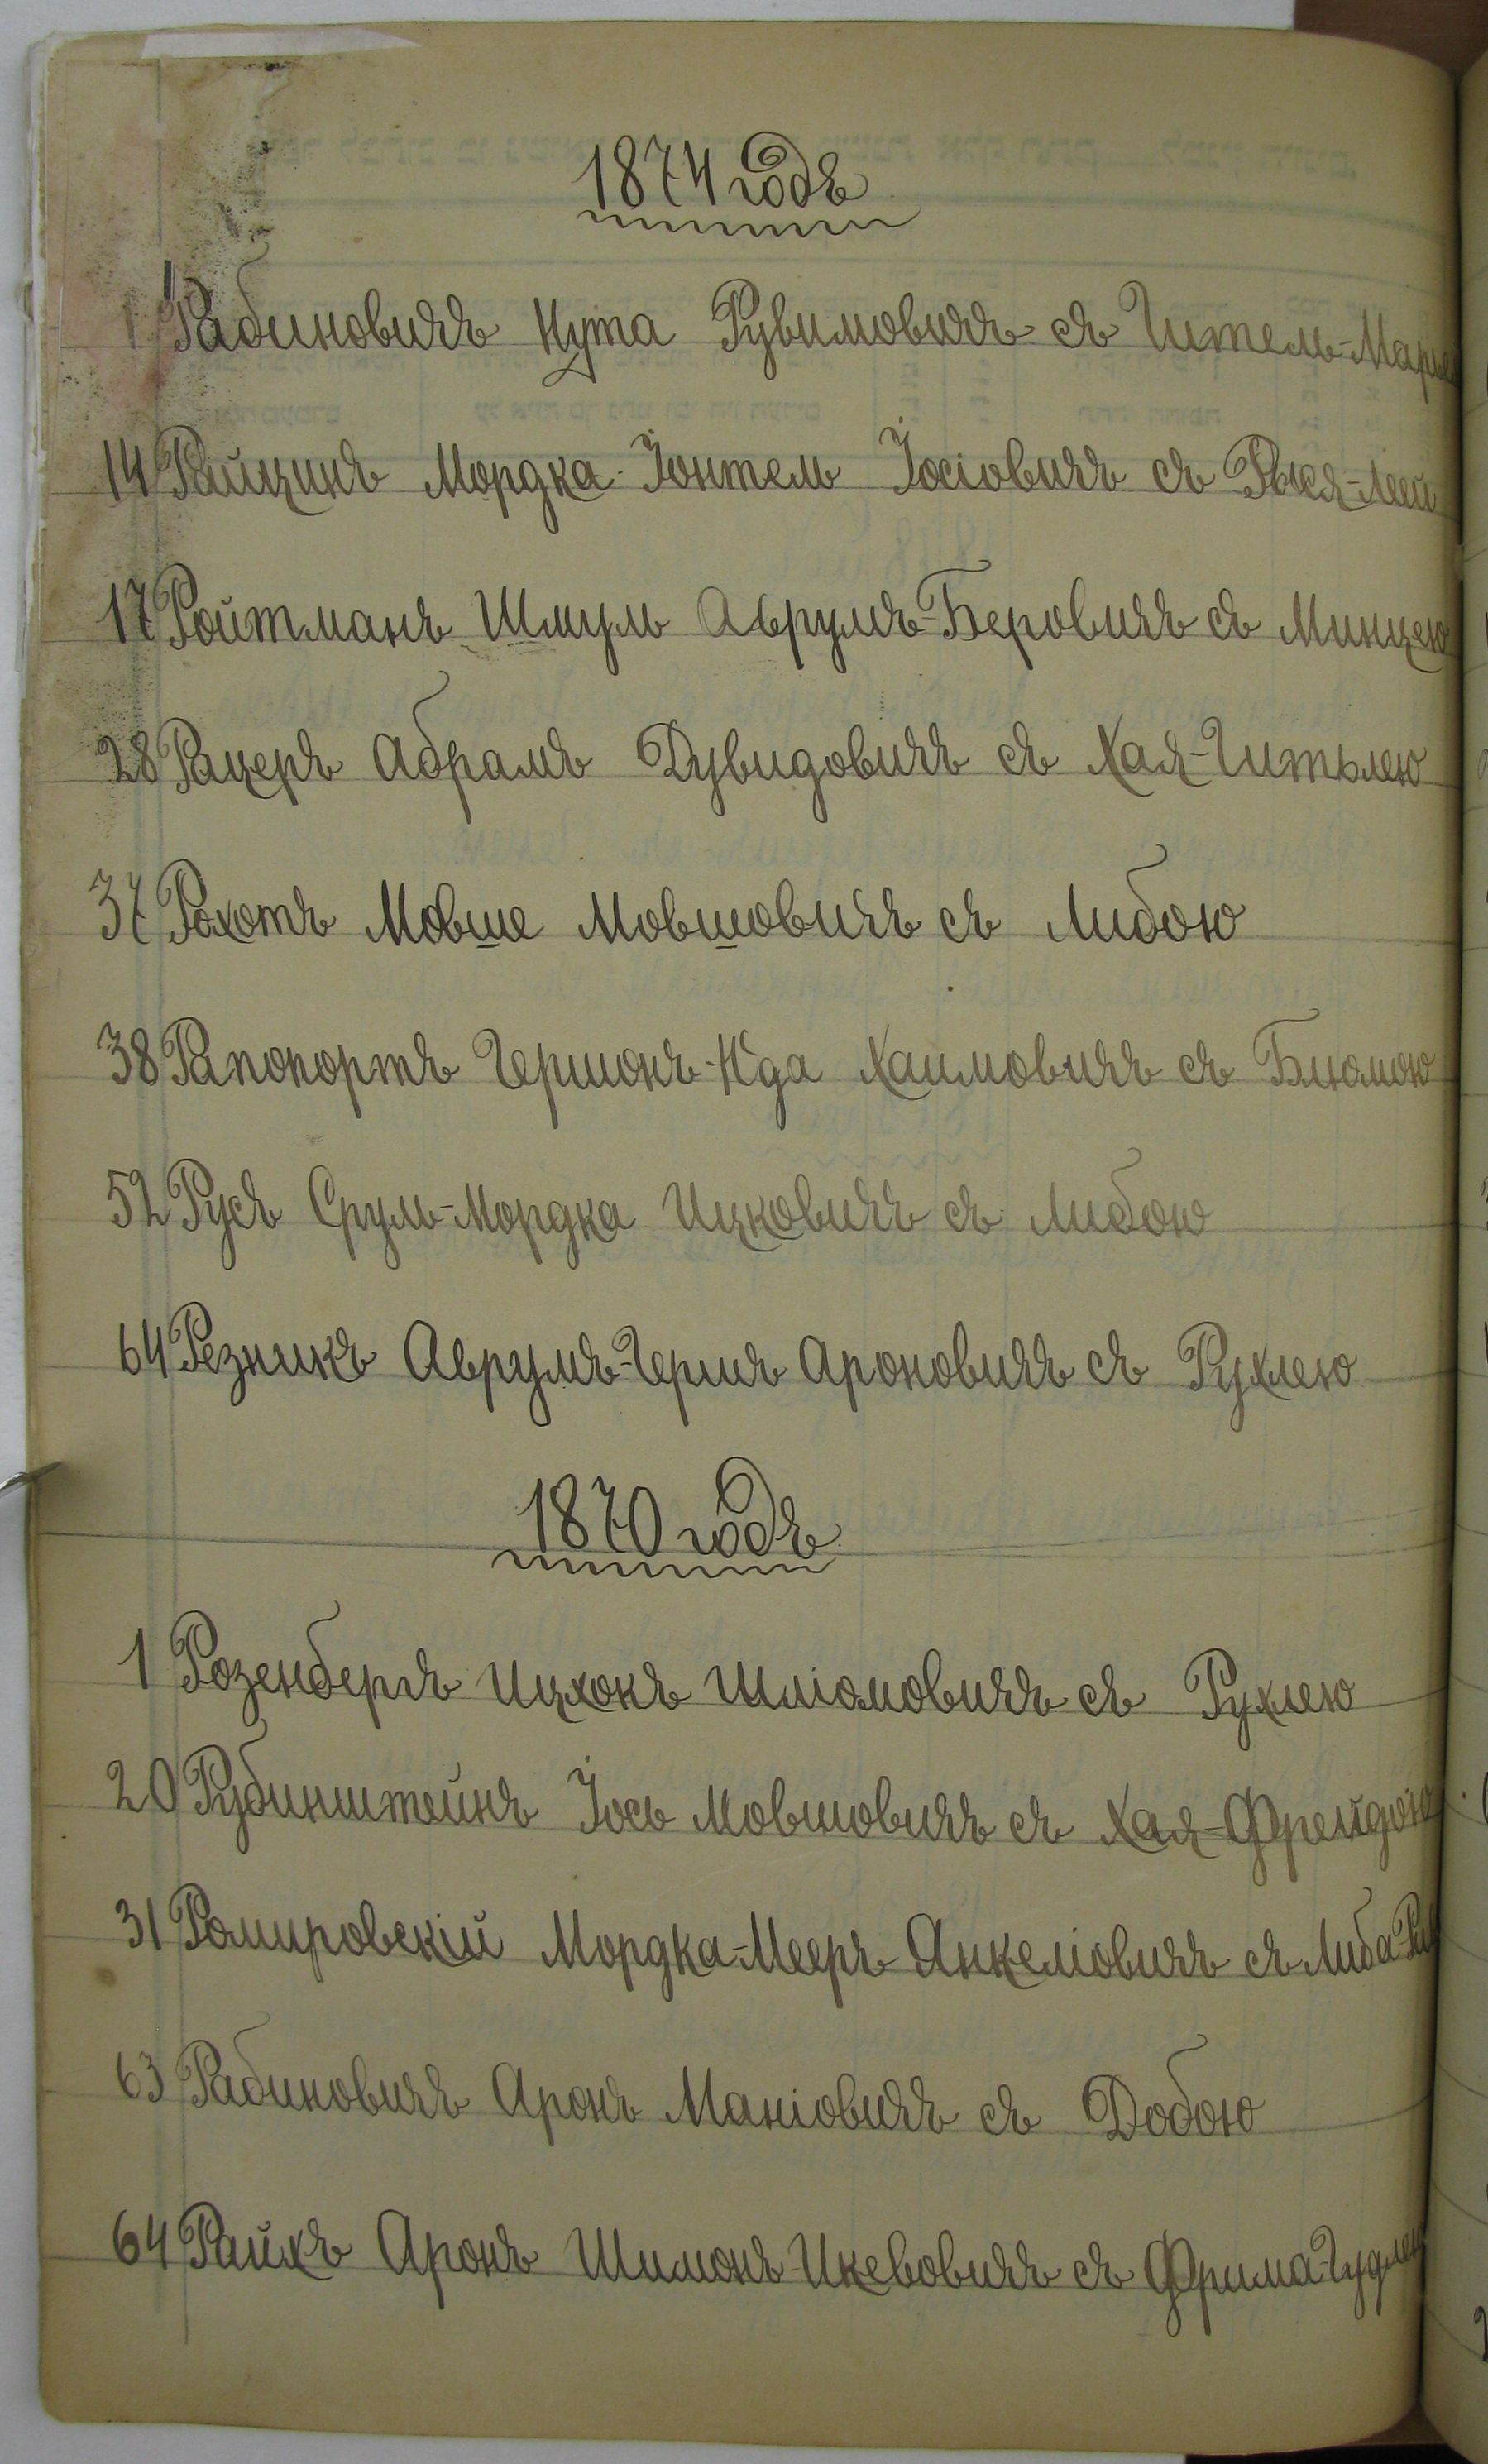 1874 годъ
1 Рабиновичъ Нута Рувимовичъ съ Гитель-Марьею
14 Райцинъ Мордка-Іонтель Іосіовичъ съ Рыся-Леей
17 Ройтманъ Шмуль Аврумъ-Беровичъ съ Минцею
28 Рацеръ Абрамъ Дувидовичъ съ Хая-Гитьлею
37 Рохотъ Мовше Мовшовичъ съ Либою
38 Рапопортъ Гершонъ-Юда Хаимовичъ съ Блюмою
52 Русъ Сруль-Мордка Ицковичъ съ Либою
64 Резникъ Аврумъ-Гершъ Ароновичъ съ Рухлею
1870 годъ
1 Розенбергъ Ицхокъ Шліомовичъ съ Рухлею
20 Рубинштейнъ Іось Мовшовичъ съ Хая-Фрейдою
31 Ромировскій Мордка-Мееръ Анкеліовичъ съ Либа
63 Рабиновичъ Аронъ Маніовичъ съ Добою
64 Райхъ Аронъ Шимонъ-Икевовичъ съ Фрима-Гудлею